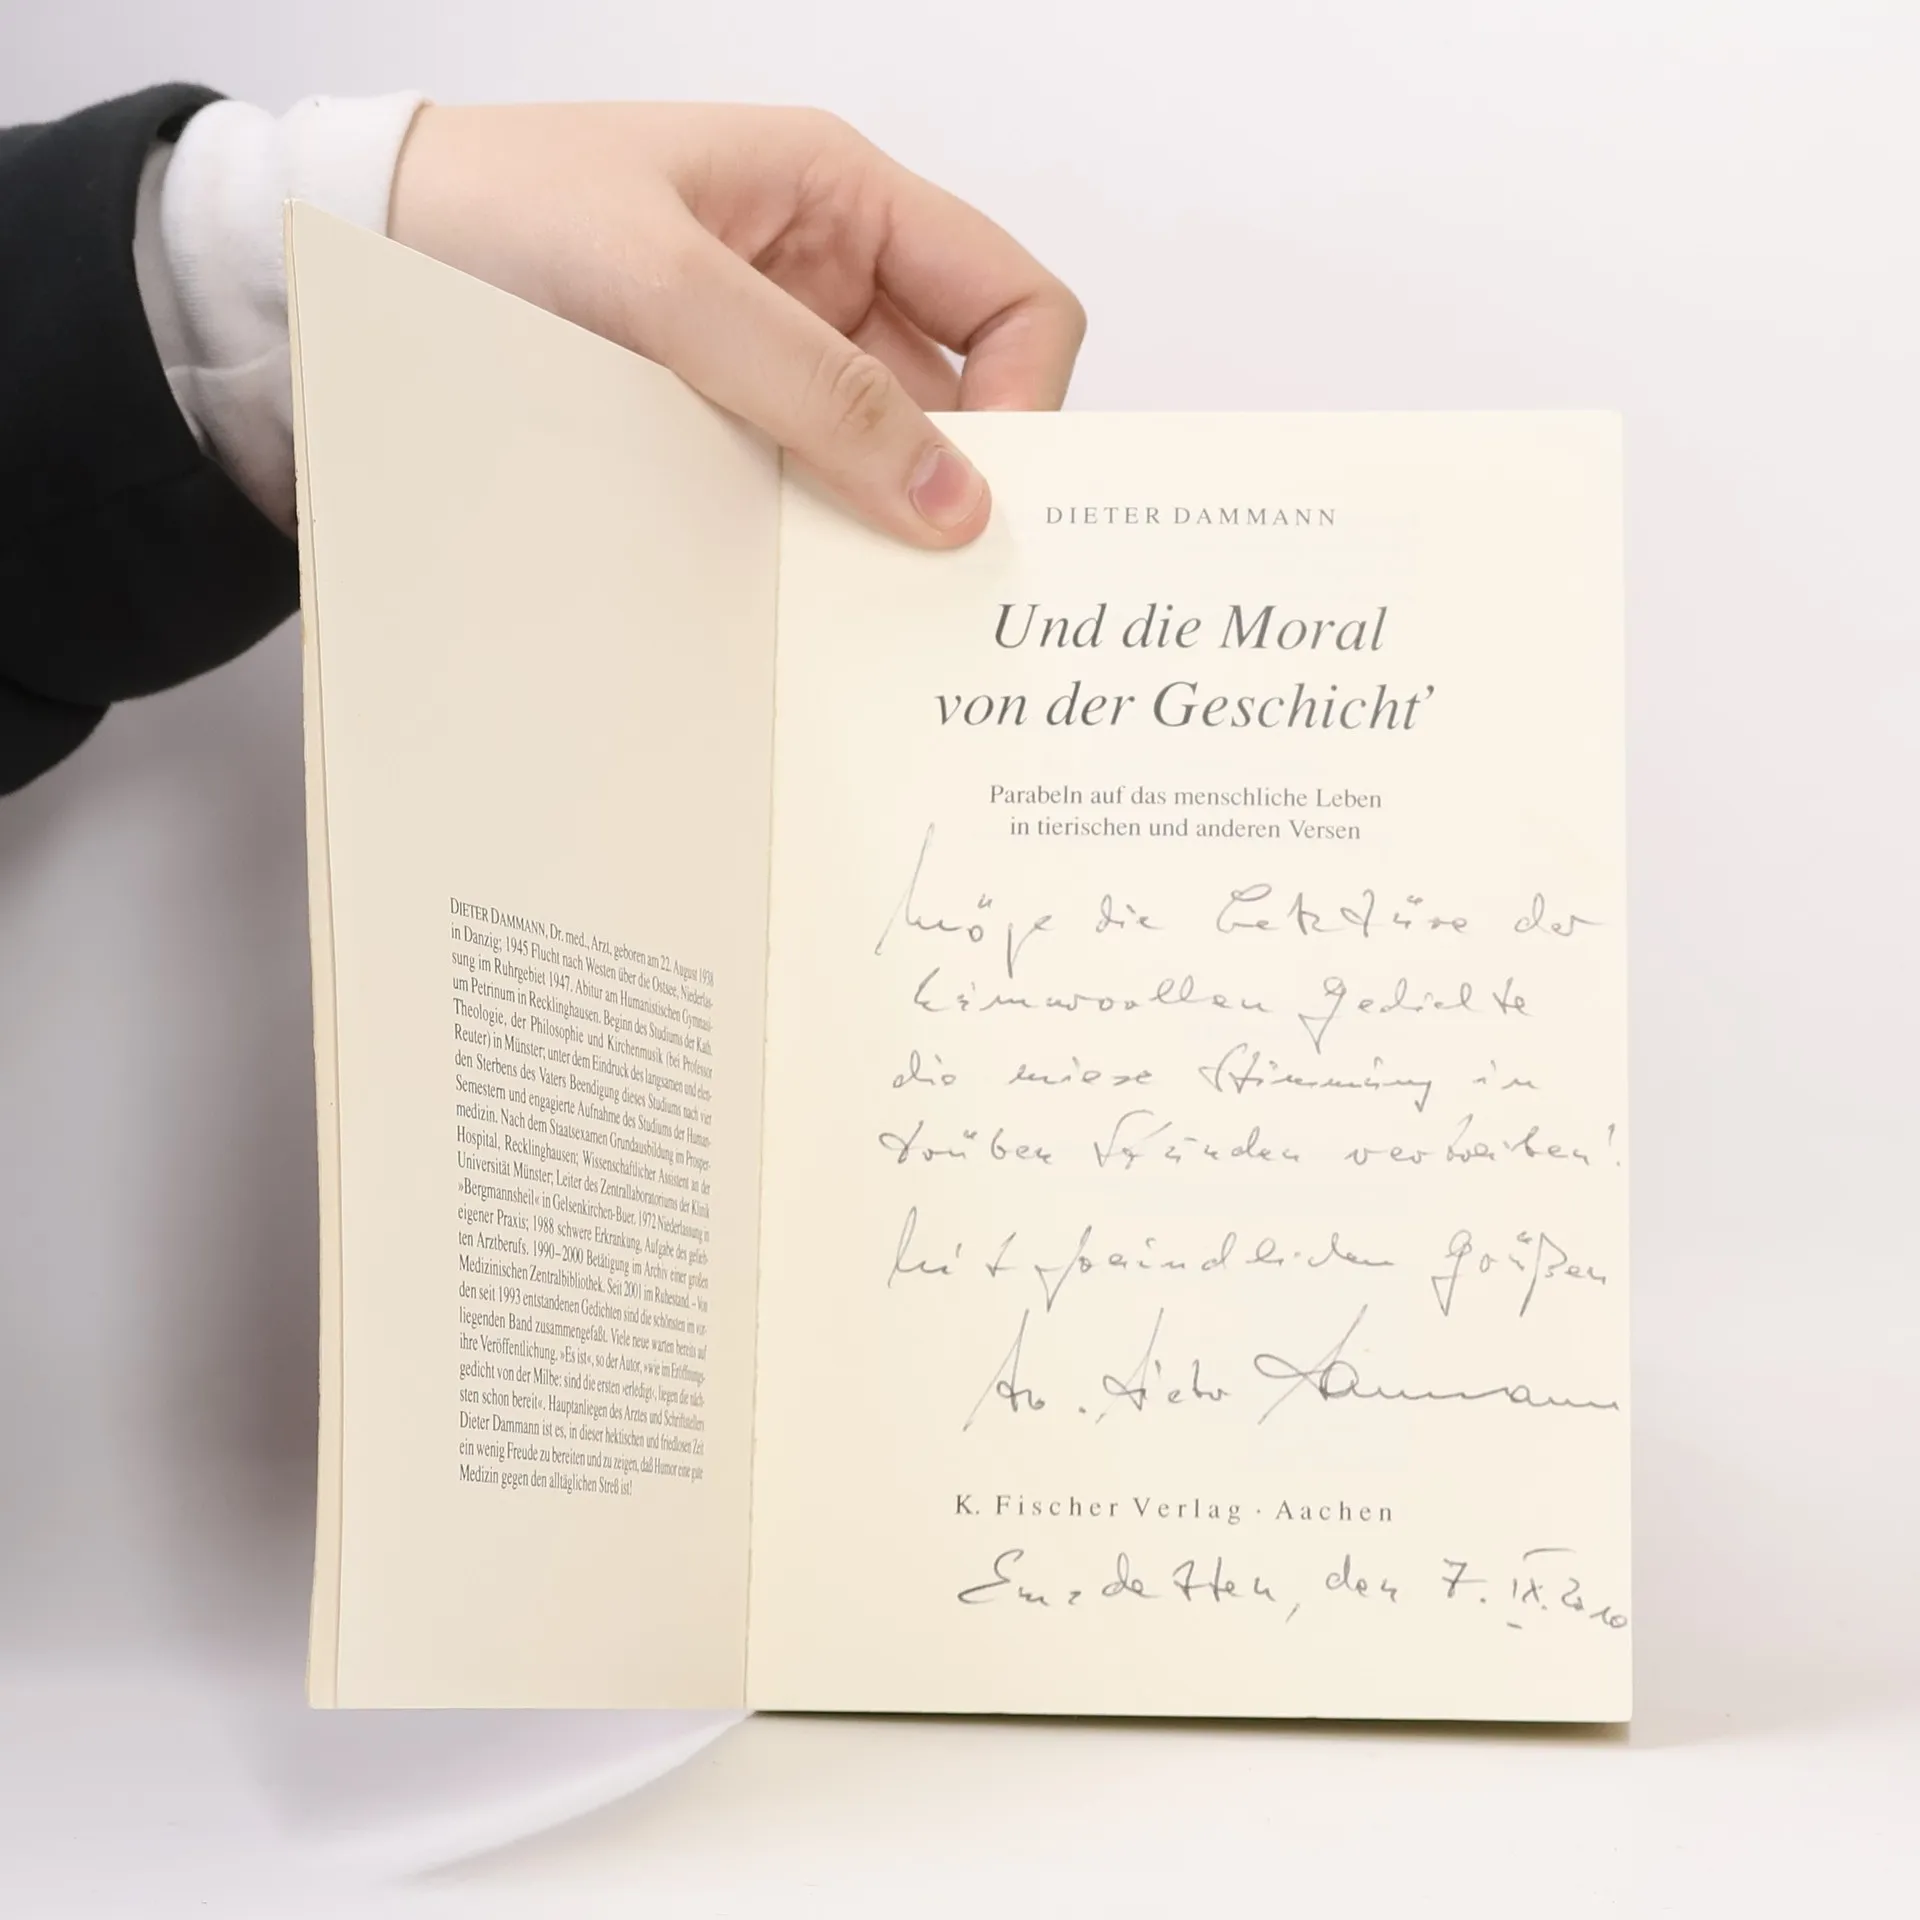 DIETER DAMMANN, Dr. med., Arzt, geboren am 22. August 1938
in Danzig; 1945 Flucht nach Westen über die Ostsee, Niederlas-
sung im Ruhrgebiet 1947. Abitur am Humanistischen Gymnasi-
um Petrinum in Recklinghausen. Beginn des Studiums der Kath.
Theologie, der Philosophie und Kirchenmusik (bei Professor
Reuter) in Münster; unter dem Eindruck des langsamen und elen-
den Sterbens des Vaters Beendigung dieses Studiums nach vier
Semestern und engagierte Aufnahme des Studiums der Human-
medizin. Nach dem Staatsexamen Grundausbildung im Prosper-
Hospital, Recklinghausen; Wissenschaftlicher Assistent an der
Universität Münster; Leiter des Zentrallaboratoriums der Klinik
»Bergmannsheil« in Gelsenkirchen-Buer. 1972 Niederlassung in
eigener Praxis; 1988 schwere Erkrankung, Aufgabe des gelieb-
ten Arztberufs. 1990–2000 Betätigung im Archiv einer großen
Medizinischen Zentralbibliothek. Seit 2001 im Ruhestand. – Von
den seit 1993 entstandenen Gedichten sind die schönsten im vor-
liegenden Band zusammengefaßt. Viele neue warten bereits auf
ihre Veröffentlichung. »Es ist«, so der Autor, »wie im Eröffnungs-
gedicht von der Milbe: sind die ersten ›erledigt‹, liegen die näch-
sten schon bereit«. Hauptanliegen des Arztes und Schriftstellers
Dieter Dammann ist es, in dieser hektischen und friedlosen Zeit
ein wenig Freude zu bereiten und zu zeigen, daß Humor eine gute
Medizin gegen den alltäglichen Streß ist!
DIETER DAMMANN
Und die Moral
von der Geschicht’
Parabeln auf das menschliche Leben
in tierischen und anderen Versen
Möge die Lektüre der
humorvollen Gedichte
die miese Stimmung in
trüben Stunden vertreiben!
Mit freundlichen Grüßen
Dr. Dieter Dammann
K. Fischer Verlag · Aachen
Emsdetten, den 7. IX. 2010